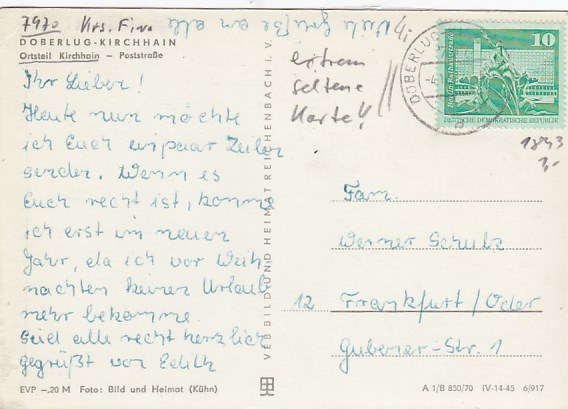 7970 Krs. Fiwa
Viele Grüße an alle
DOBERLUG-KIRCHHAIN
Ortsteil Kirchhain – Poststraße
Ihr Lieben!
Heute nur möchte
ich Euch ein paar Zeilen
senden. Wenn es
Euch recht ist, komme
ich erst im neuen
Jahr, da ich vor Weih
nachten keinen Urlaub
mehr bekomme.
Seid alle recht herzlich
gegrüßt von Edith
EVP –,20 M Foto: Bild und Heimat (Kühn)
VEB BILD UND HEIMAT REICHENBACH I. V.
extrem
seltene
Karte!!
DOBERLUG
10
DEUTSCHE DEMOKRATISCHE REPUBLIK
1893
3,-
Fam.
Werner Schulz
12 Frankfurt/Oder
Gubener-Str. 1
A 1/B 850/70 IV-14-45 6/917